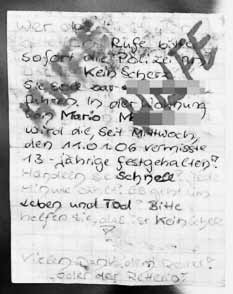 HILFE
Wer
Rufe bitte
sofort die Polizei an!
Kein Scherz
Sie soll zur
fahren. In der Wohnung
von Mario M
wird die, seit Mittwoch,
den 11.01.06 vermisste
13-jährige festgehalten!
Handeln Sie Schnell jede
es geht um
Leben und Tod! Bitte
helfen sie, das ist Kein
Vielen Dank dem Retter
oder der Retterin!